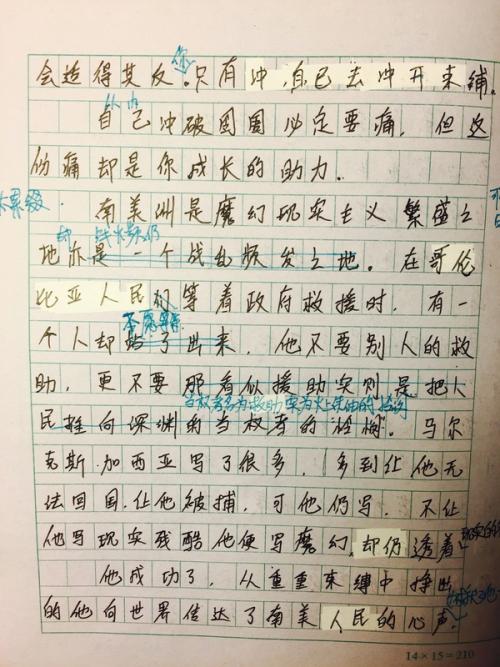 会适得其反。你只有冲,自己去冲开束缚。
从内
自己冲破囹圄必定要痛,但这
伤痛却是你成长的助力。
南美洲是魔幻现实主义繁盛之
地亦是一个战乱频发之地。在哥伦
比亚人民们等着政府救援时,有一
个人却站了出来,他不要别人的救
助,更不要那看似援助实则是把人
民推向深渊的当权者的怜悯。马尔
克斯·加西亚写了很多,多到让他无
法回国,让他被捕,可他仍写,不让
他写现实残酷他便写魔幻,却仍透着
他成功了,从重重束缚中挣出
的他向世界传达了南美人民的心声。
14×15=210